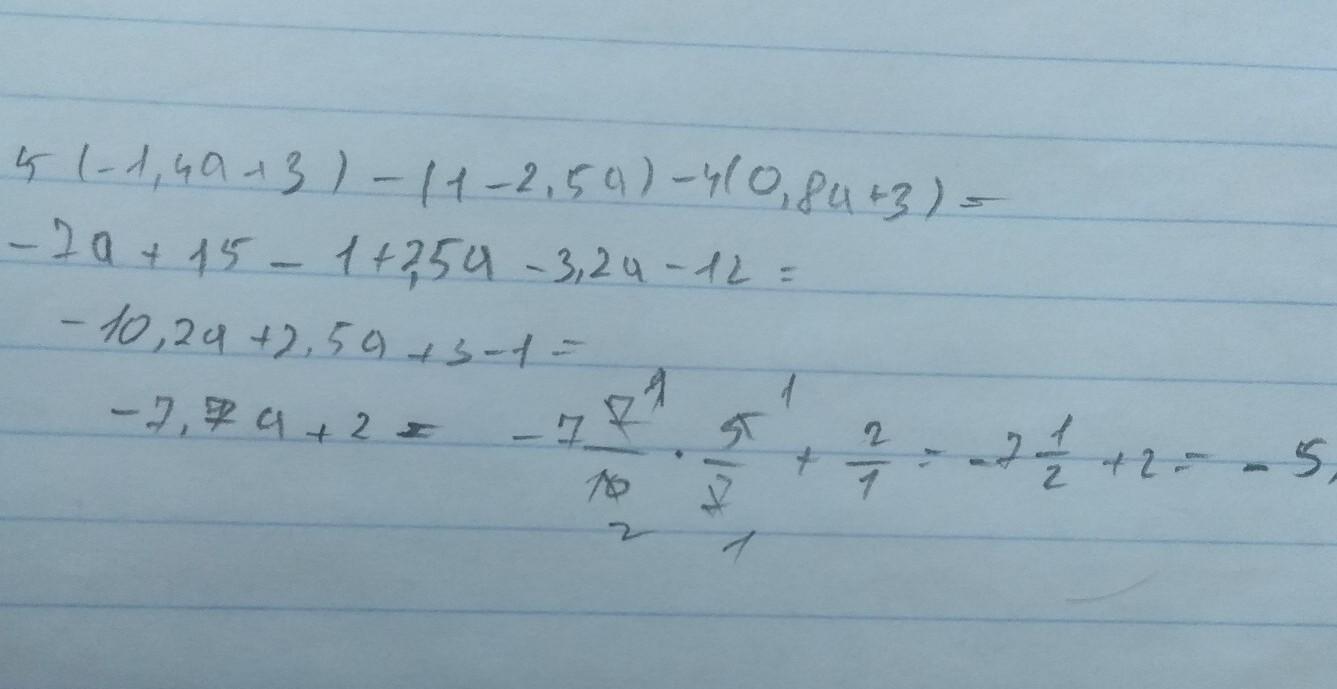 5(-1,4a+3)-(1-2,5a)-4(0,8a+3)=
-7a+15-1+2,5a-3,2a-12=
-10,2a+2,5a+3-1=
-7,7a+2= -7 7/10 1 2 · 5/7 1 1 + 2/1 = -7 1/2 +2= -5,